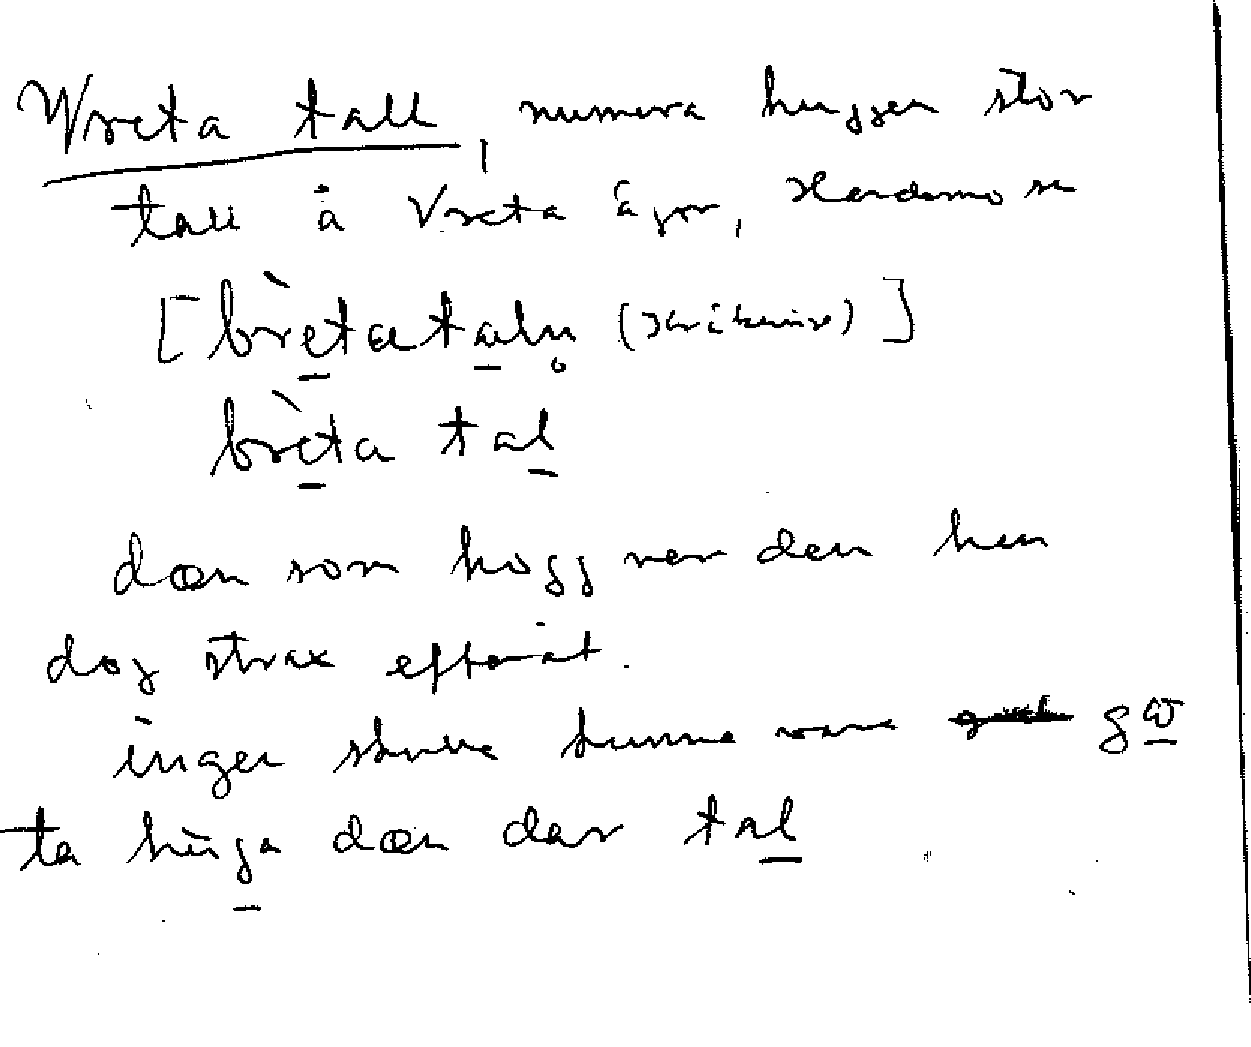 Wreta tall, numera huggen stor
tall å Vreta ägor,
[brètatalņ (skåkwiv)]
brèta tal
dæn som hogg ner den han
dog strax efteråt.
ingen skulle kunna vara gω
ta hùga dæn dar tal